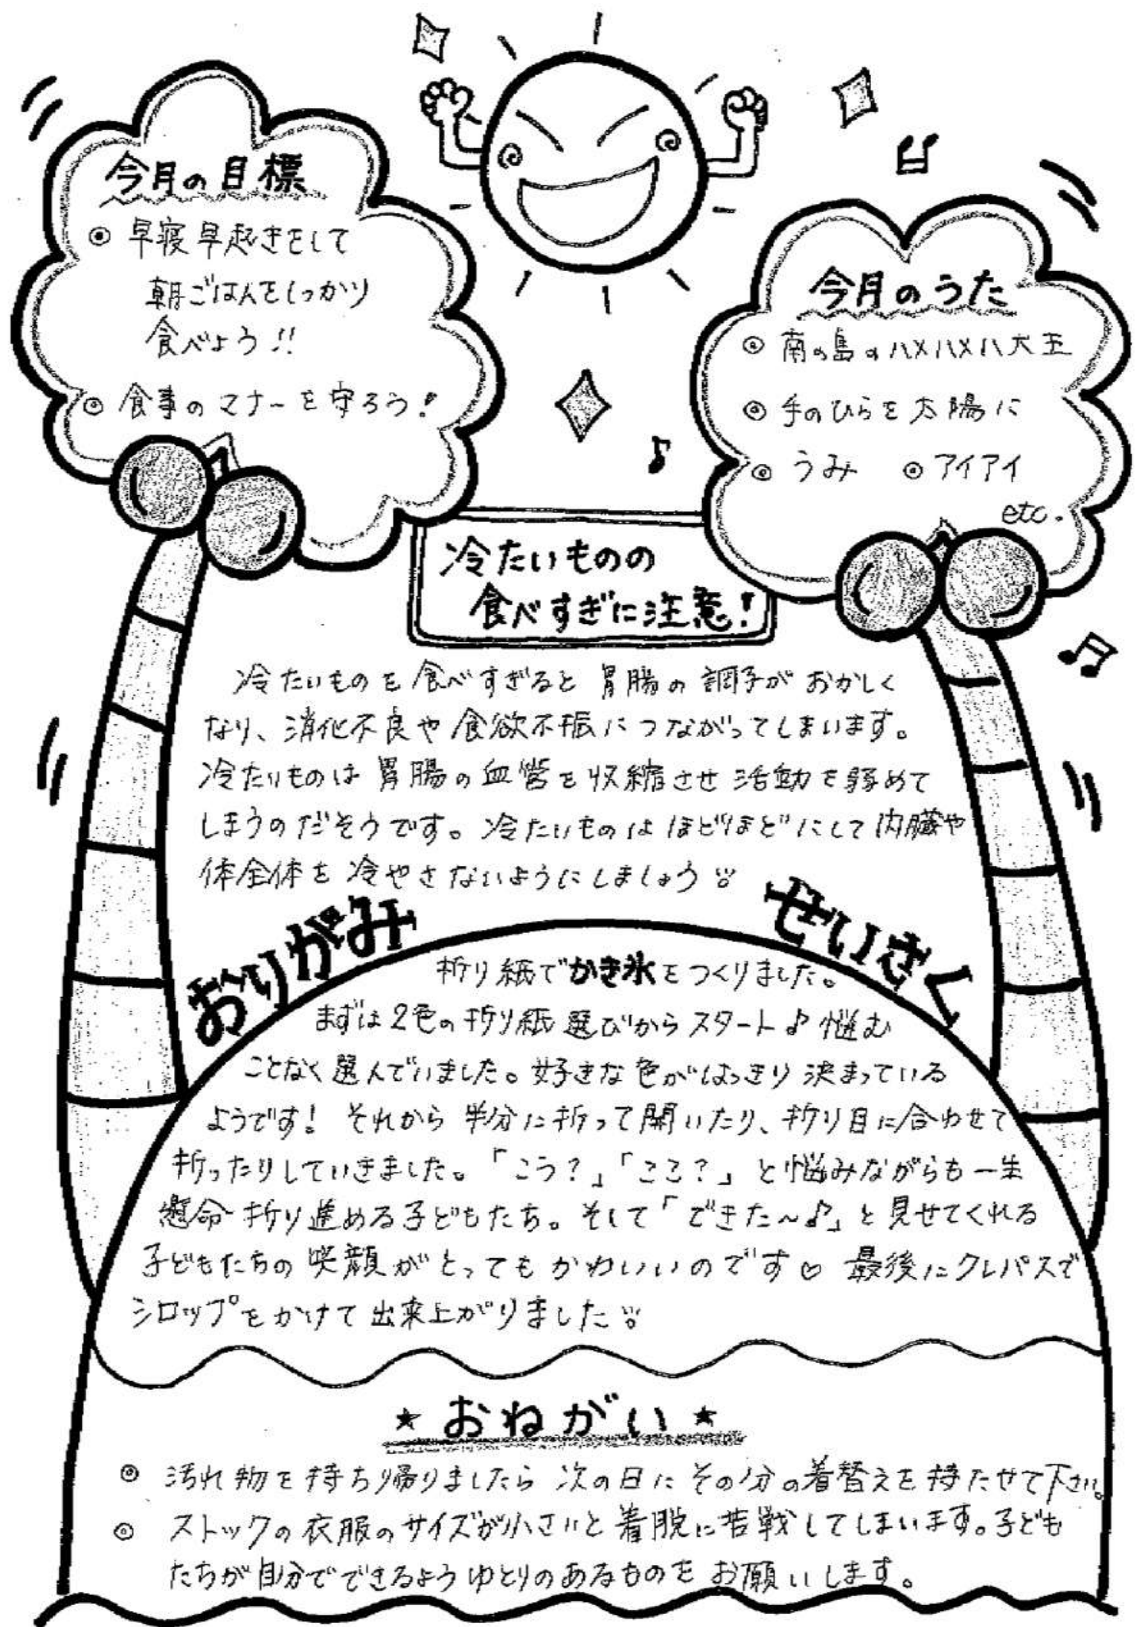 今月の目標
◎ 早寝早起きをして
朝ごはんをしっかり
食べよう!!
◎ 食事のマナーを守ろう!
今月のうた
◎ 南の島のハメハメハ大王
◎ 手のひらを太陽に
◎ うみ ◎ アイアイ
etc.
冷たいものの
食べすぎに注意!
冷たいものを食べすぎると胃腸の調子がおかしく
なり、消化不良や食欲不振につながってしまいます。
冷たいものは胃腸の血管を収縮させ活動を弱めて
しまうのだそうです。冷たいものはほどほどにして内臓や
体全体を冷やさないようにしましょう
おりがみ せいさく
折り紙でかき氷をつくりました。
まずは2色の折り紙選びからスタート♪悩む
ことなく選んでいました。好きな色がはっきり決まっている
ようです! それから半分に折って開いたり、折り目に合わせて
折ったりしていきました。「こう?」「ここ?」と悩みながらも一生
懸命折り進める子どもたち。そして「できた~♪」と見せてくれる
子どもたちの笑顔がとってもかわいいのです♡ 最後にクレパスで
シロップをかけて出来上がりました
★おねがい★
◎ 汚れ物を持ち帰りましたら次の日にその分の着替えを持たせて下さい。
◎ ストックの衣服のサイズが小さいと着脱に苦戦してしまいます。子ども
たちが自分でできるようゆとりのあるものをお願いします。